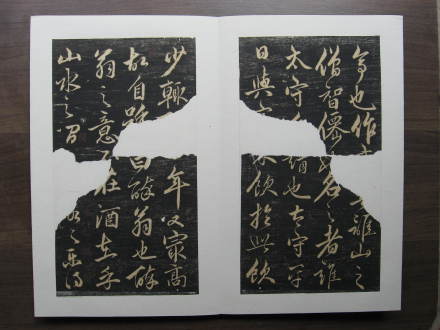 亭也作誰山之
僧智僊名之者誰
太守謂也太守
日與飲於此飲
少輒年又最高
故自號曰醉翁也醉
翁之意不在酒在乎
山水之間之樂得